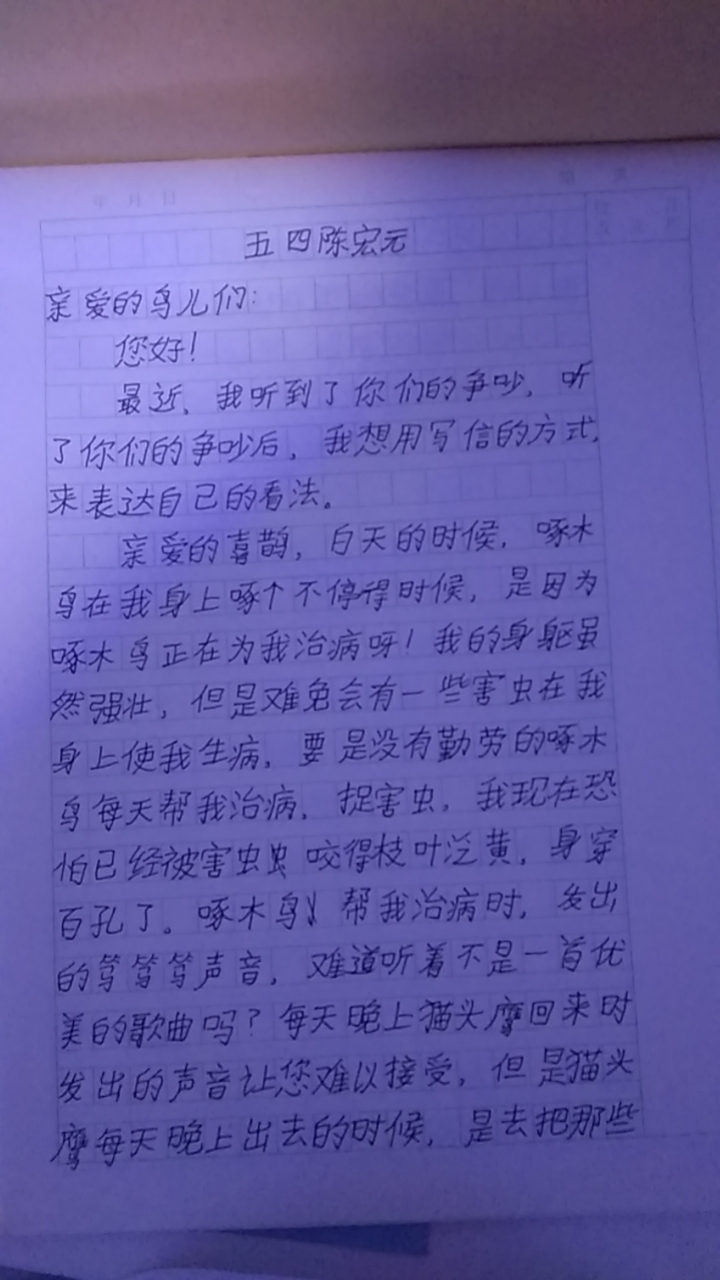 年 月 日
五四陈宏元
亲爱的鸟儿们：
您好！
最近，我听到了你们的争吵，听
了你们的争吵后，我想用写信的方式，
来表达自己的看法。
亲爱的喜鹊，白天的时候，啄木
鸟在我身上啄个不停得时候，是因为
啄木鸟正在为我治病呀！我的身躯虽
然强壮，但是难免会有一些害虫在我
身上使我生病，要是没有勤劳的啄木
鸟每天帮我治病，捉害虫，我现在恐
怕已经被害虫咬得枝叶泛黄，身穿
百孔了。啄木鸟帮我治病时，发出
的笃笃笃声音，难道听着不是一首优
美的歌曲吗？每天晚上猫头鹰回来时
发出的声音让您难以接受，但是猫头
鹰每天晚上出去的时候，是去把那些